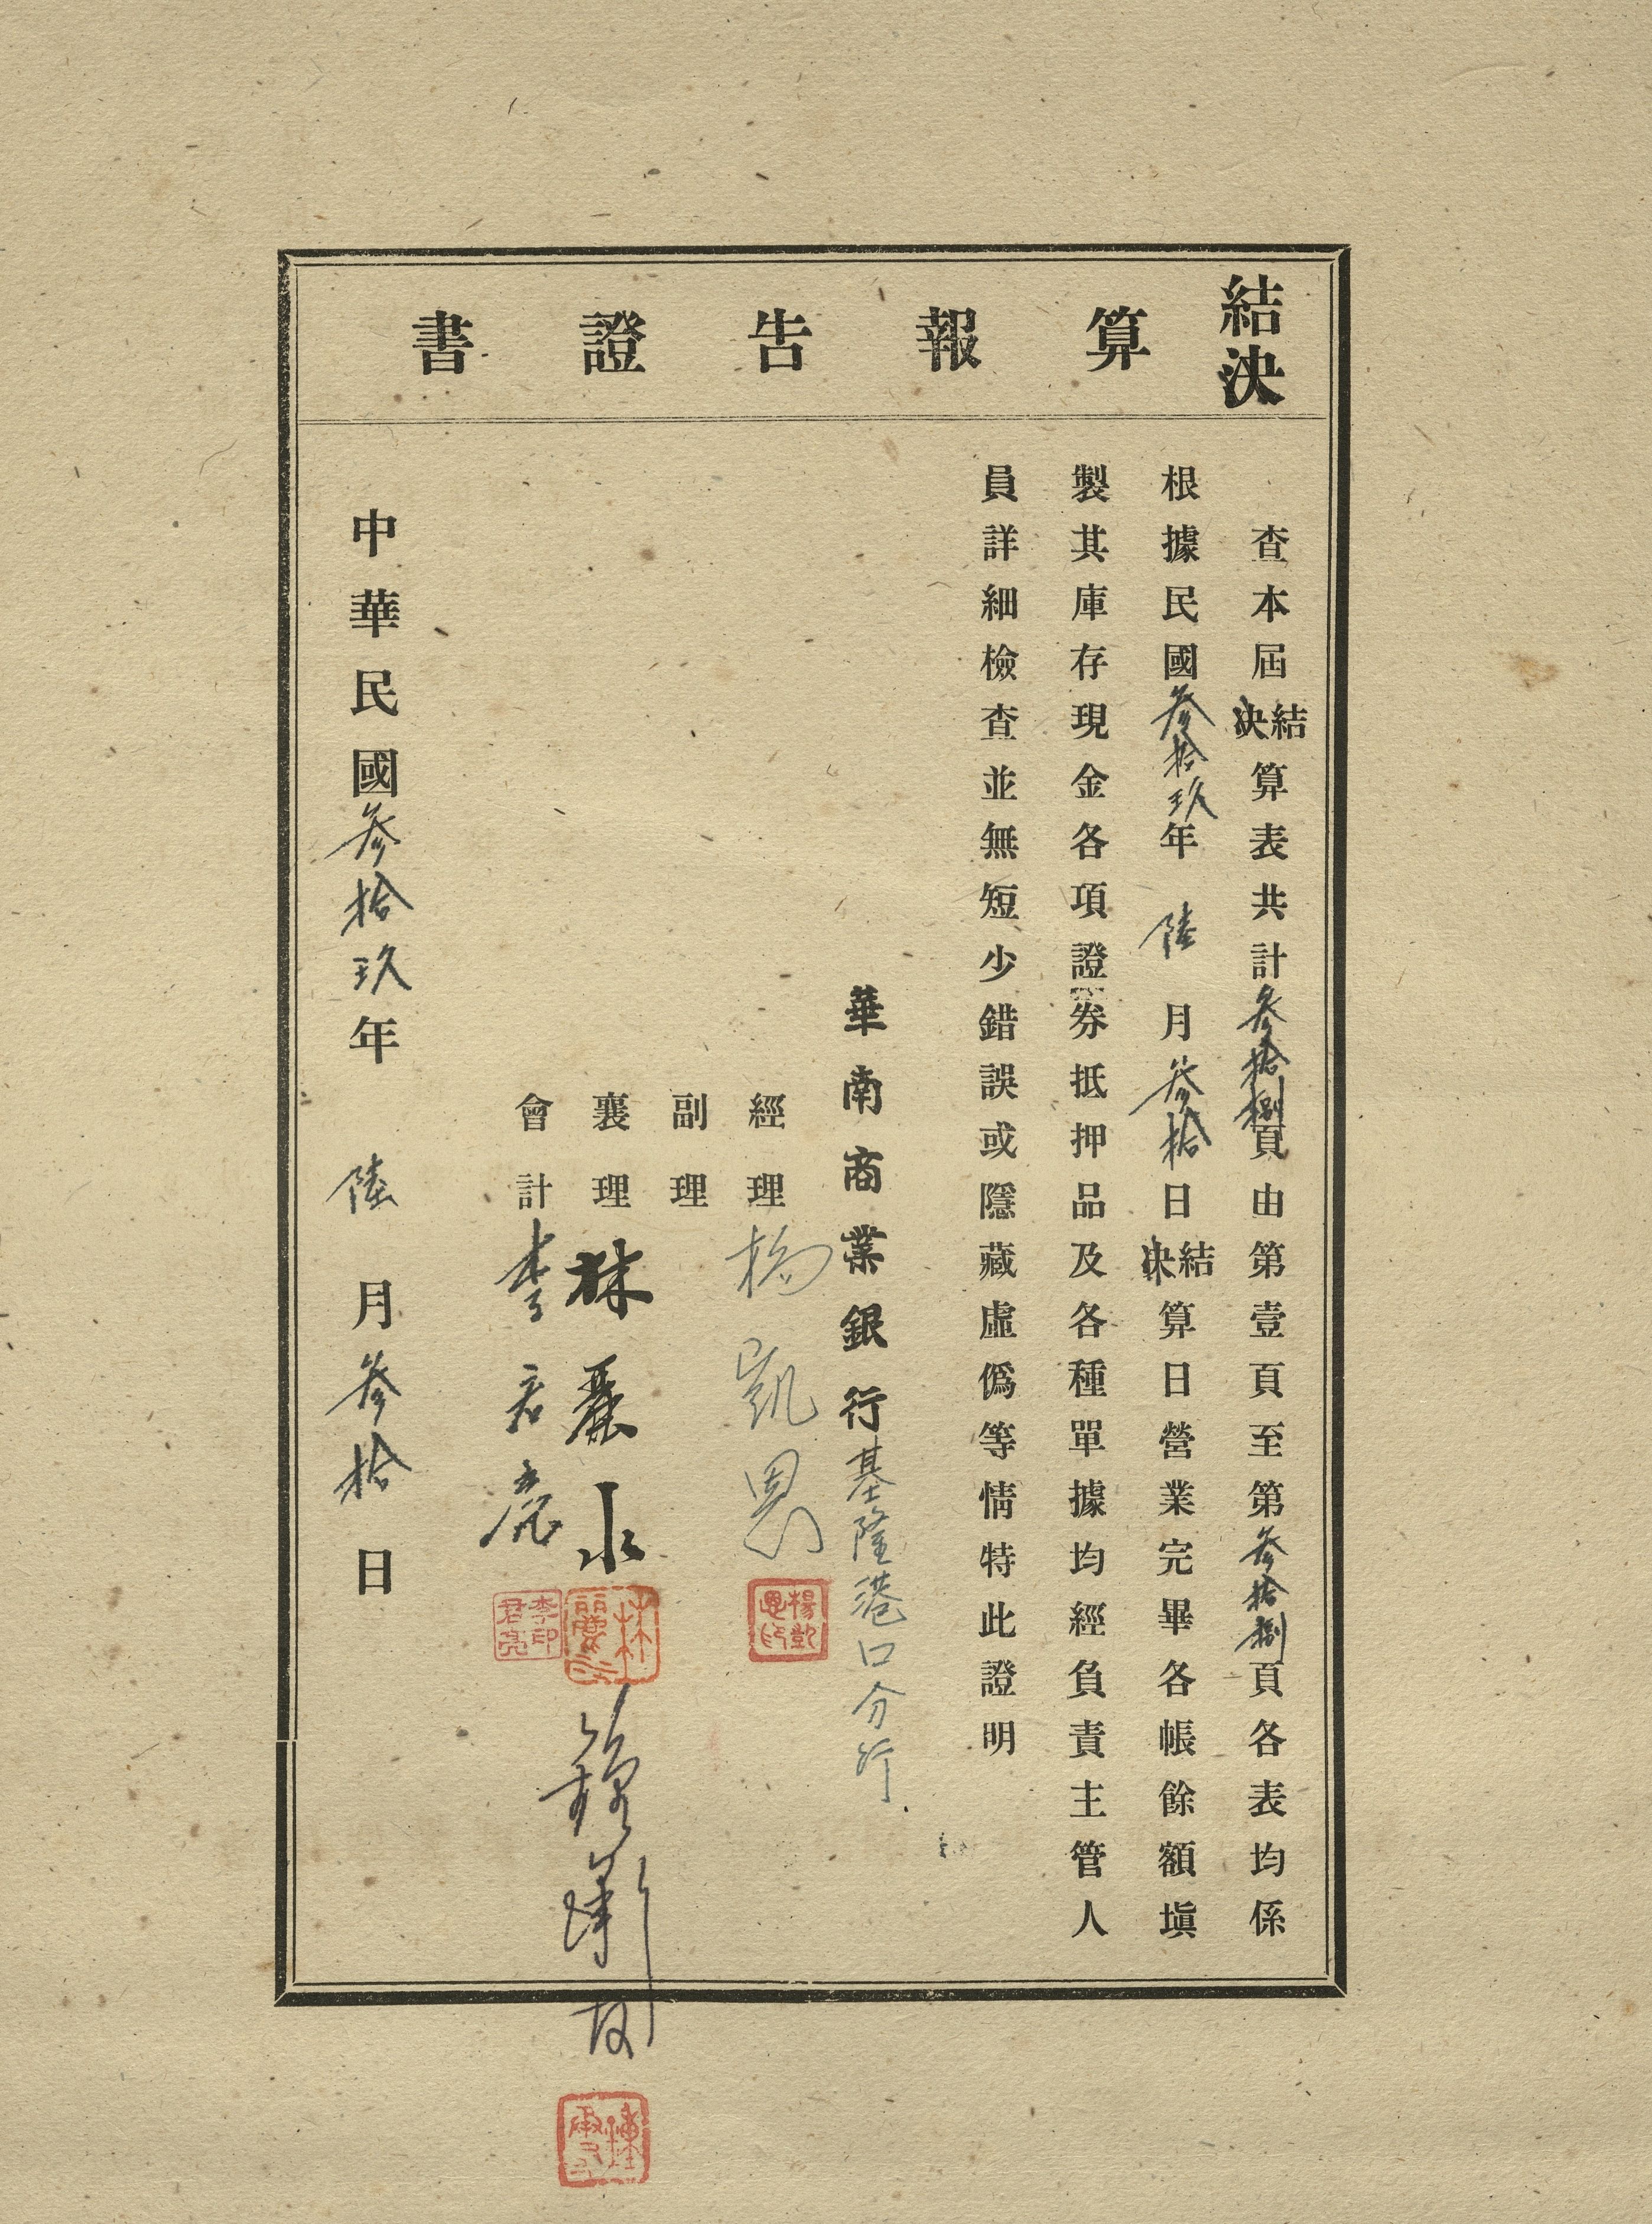 結決算報告證書
查本屆結決算表共計參拾捌頁由第壹頁至第參拾捌頁各表均係
根據民國參拾玖年陸月參拾日結決算日營業完畢各帳餘額塡
製其庫存現金各項證券抵押品及各種單據均經負責主管人
員詳細檢查並無短少錯誤或隱藏虛僞等情特此證明
華南商業銀行基隆港口分行
經理 楊凱恩
楊凱恩印
副理
襄理 林麗水
會計 李君亮
李印君亮
中華民國參拾玖年陸月參拾日